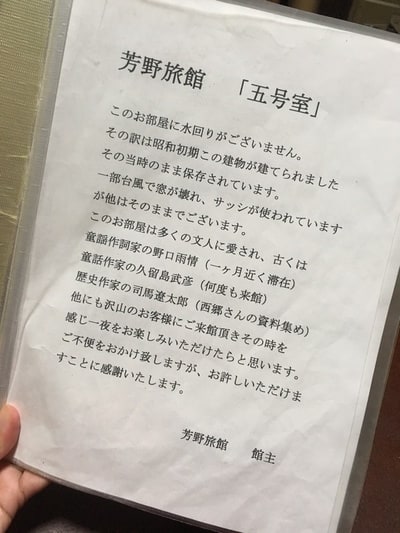 芳野旅館　「五号室」
このお部屋に水回りがございません。
その訳は昭和初期この建物が建てられました
その当時のまま保存されています。
一部台風で窓が壊れ、サッシが使われています
が他はそのままでございます。
このお部屋は多くの文人に愛され、古くは
童謡作詞家の野口雨情（一ヶ月近く滞在）
童話作家の久留島武彦（何度も来館）
歴史作家の司馬遼太郎（西郷さんの資料集め）
他にも沢山のお客様にご来館頂きその時を
感じ一夜をお楽しみいただけたらと思います。
ご不便をおかけ致しますが、お許しいただけま
すことに感謝いたします。
芳野旅館　館主